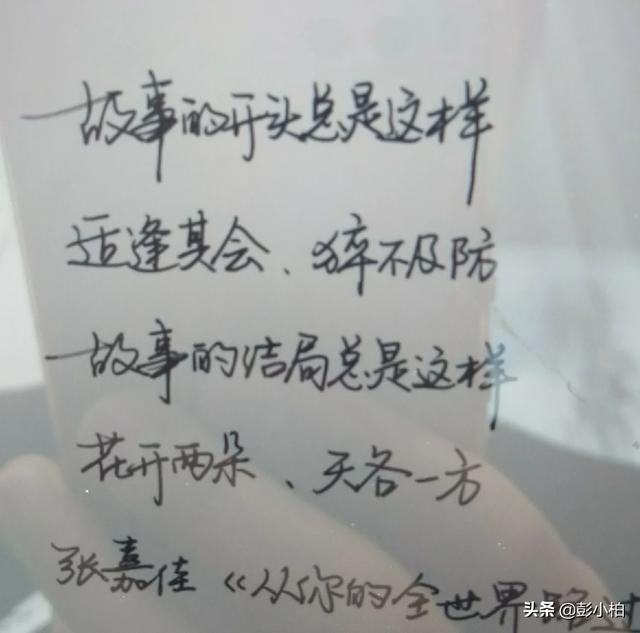 故事的开头总是这样
适逢其会、猝不及防
故事的结局总是这样
花开两朵、天各一方
张嘉佳《从你的全世界路过
头条 @彭小柏